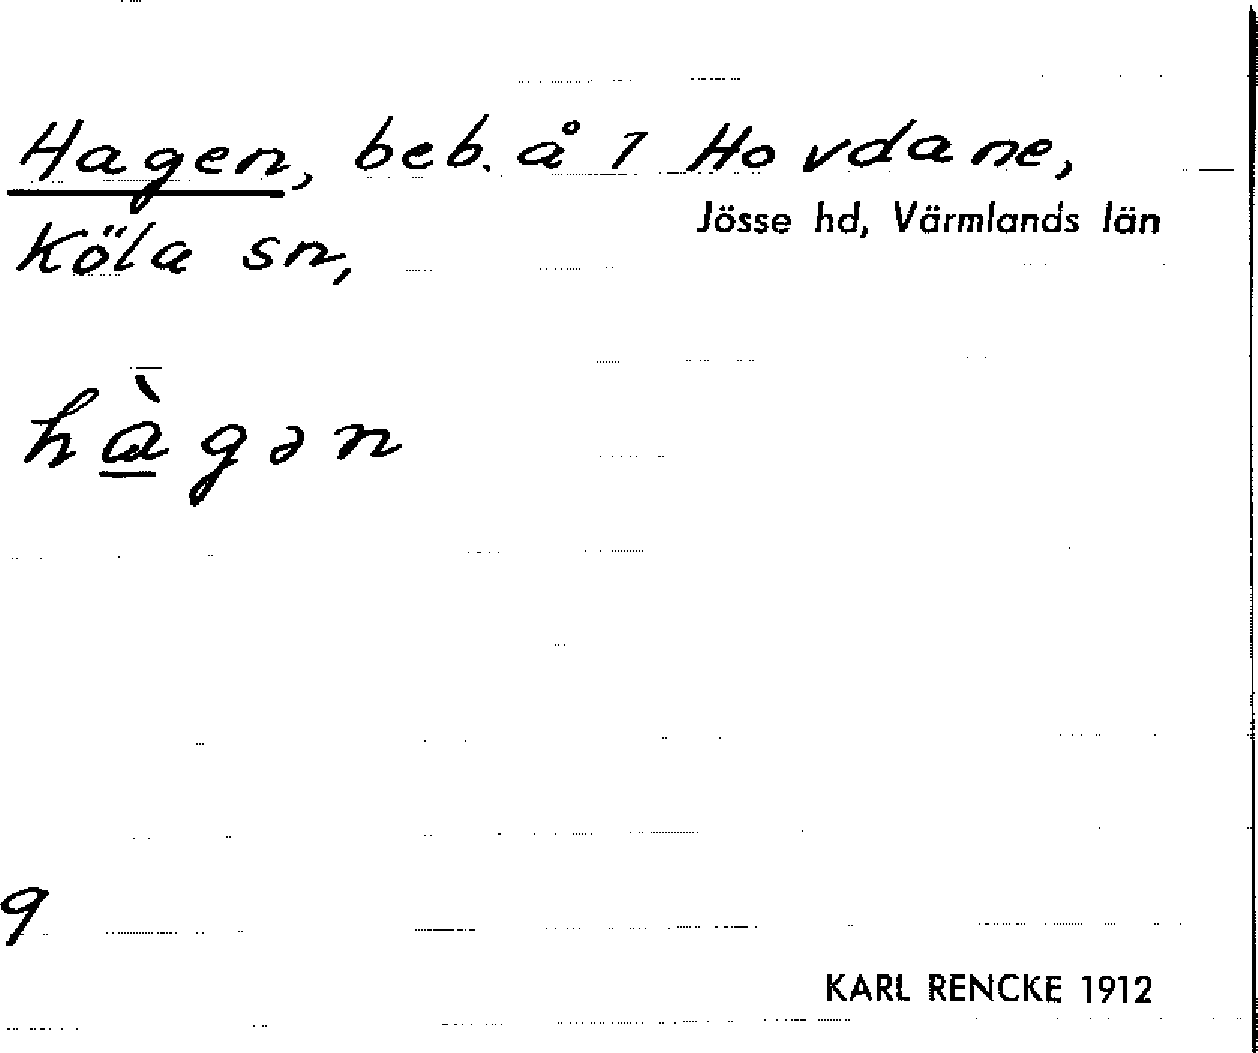 Hagen, beb. å 1 Hovdane,
Jösse hd, Värmlands län
Köla sn,
hàgən
9
KARL RENCKE 1912